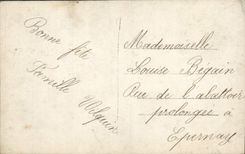 Bonne fête
Famille
Mademoiselle
Louise Begain
Rue de l'abattoir
prolongée à
Epernay